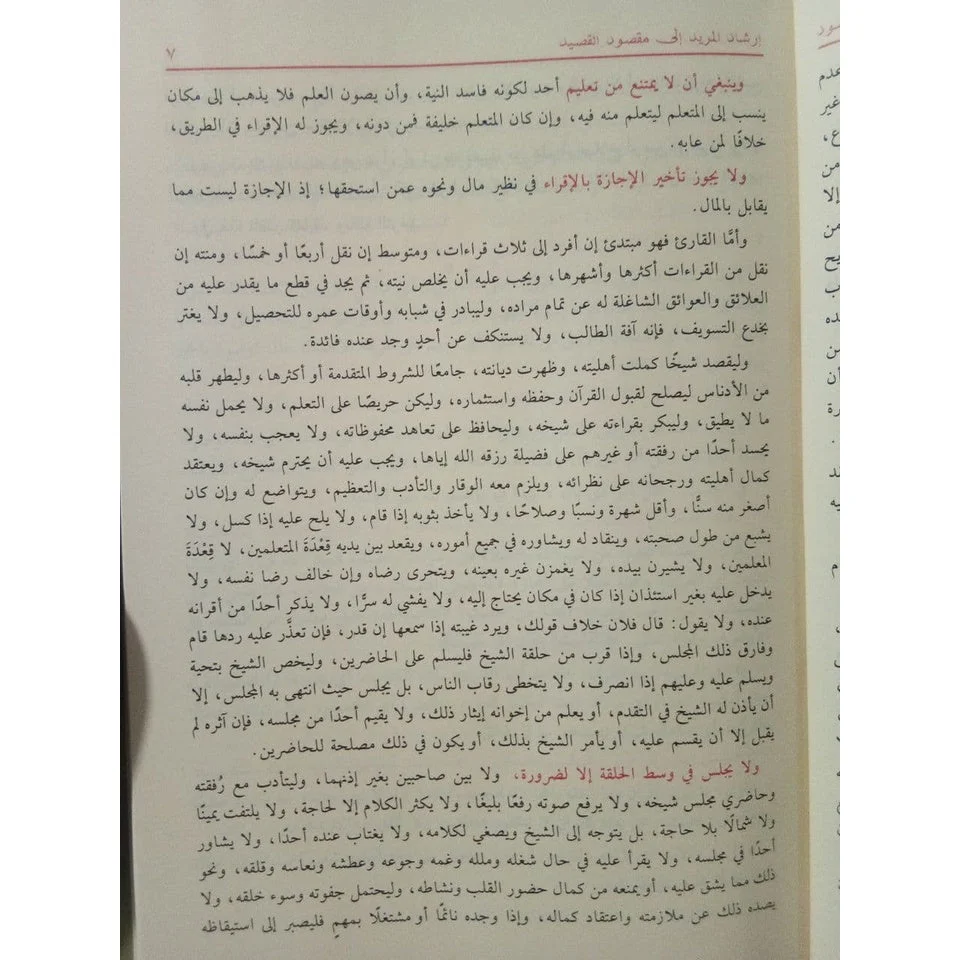 إرشاد المريد إلى مقصود القصيد ٧
وينبغي أن لا يمتنع من تعليم أحد لكونه فاسد النية، وأن يصون العلم فلا يذهب إلى مكان
ينسب إلى المتعلم ليتعلم منه فيه، وإن كان المتعلم خليفة فمن دونه، ويجوز له الإقراء في الطريق،
خلافًا لمن عابه.
ولا يجوز تأخير الإجازة بالإقراء في نظير مال ونحوه عمن استحقها؛ إذ الإجازة ليست مما
يقابل بالمال.
وأمَّا القارئ فهو مبتدئ إن أفرد إلى ثلاث قراءات، ومتوسط إن نقل أربعًا أو خمسًا، ومنته إن
نقل من القراءات أكثرها وأشهرها، ويجب عليه أن يخلص نيته، ثم يجد في قطع ما يقدر عليه من
العلائق والعوائق الشاغلة له عن تمام مراده، وليبادر في شبابه وأوقات عمره للتحصيل، ولا يغتر
بخدع التسويف، فإنه آفة الطالب، ولا يستنكف عن أحدٍ وجد عنده فائدة.
وليقصد شيخًا كملت أهليته، وظهرت ديانته، جامعًا للشروط المتقدمة أو أكثرها، وليطهر قلبه
من الأدناس ليصلح لقبول القرآن وحفظه واستثماره، وليكن حريصًا على التعلم، ولا يحمل نفسه
ما لا يطيق، وليبكر بقراءته على شيخه، وليحافظ على تعاهد محفوظاته، ولا يعجب بنفسه، ولا
يحسد أحدًا من رفقته أو غيرهم على فضيلة رزقه الله إياها، ويجب عليه أن يحترم شيخه، ويعتقد
كمال أهليته ورجحانه على نظرائه، ويلزم معه الوقار والتأدب والتعظيم، ويتواضع له وإن كان
أصغر منه سنًّا، وأقل شهرة ونسبًا وصلاحًا، ولا يأخذ بثوبه إذا قام، ولا يلح عليه إذا كسل، ولا
يشبع من طول صحبته، وينقاد له ويشاوره في جميع أموره، ويقعد بين يديه قِعْدَةَ المتعلمين، لا قِعْدَةَ
المعلمين، ولا يشيرن بيده، ولا يغمزن غيره بعينه، ويتحرى رضاه وإن خالف رضا نفسه، ولا
يدخل عليه بغير استئذان إذا كان في مكان يحتاج إليه، ولا يفشي له سرًّا، ولا يذكر أحدًا من أقرانه
عنده، ولا يقول: قال فلان خلاف قولك، ويرد غيبته إذا سمعها إن قدر، فإن تعذَّر عليه ردها قام
وفارق ذلك المجلس، وإذا قرب من حلقة الشيخ فليسلم على الحاضرين، وليخص الشيخ بتحية
ويسلم عليه وعليهم إذا انصرف، ولا يتخطى رقاب الناس، بل يجلس حيث انتهى به المجلس، إلا
أن يأذن له الشيخ في التقدم، أو يعلم من إخوانه إيثار ذلك، ولا يقيم أحدًا من مجلسه، فإن آثره لم
يقبل إلا أن يقسم عليه، أو يأمر الشيخ بذلك، أو يكون في ذلك مصلحة للحاضرين.
ولا يجلس في وسط الحلقة إلا لضرورة، ولا بين صاحبين بغير إذنهما، وليتأدب مع رُفقته
وحاضري مجلس شيخه، ولا يرفع صوته رفعًا بليغًا، ولا يكثر الكلام إلا لحاجة، ولا يلتفت يمينًا
ولا شمالًا بلا حاجة، بل يتوجه إلى الشيخ ويصغي لكلامه، ولا يغتاب عنده أحدًا، ولا يشاور
أحدًا في مجلسه، ولا يقرأ عليه في حال شغله وملله وغمه وجوعه وعطشه ونعاسه وقلقه، ونحو
ذلك مما يشق عليه، أو يمنعه من كمال حضور القلب ونشاطه، وليحتمل جفوته وسوء خلقه، ولا
يصده ذلك عن ملازمته واعتقاد كماله، وإذا وجده نائمًا أو مشتغلًا بمهمٍ فليصبر إلى استيقاظه